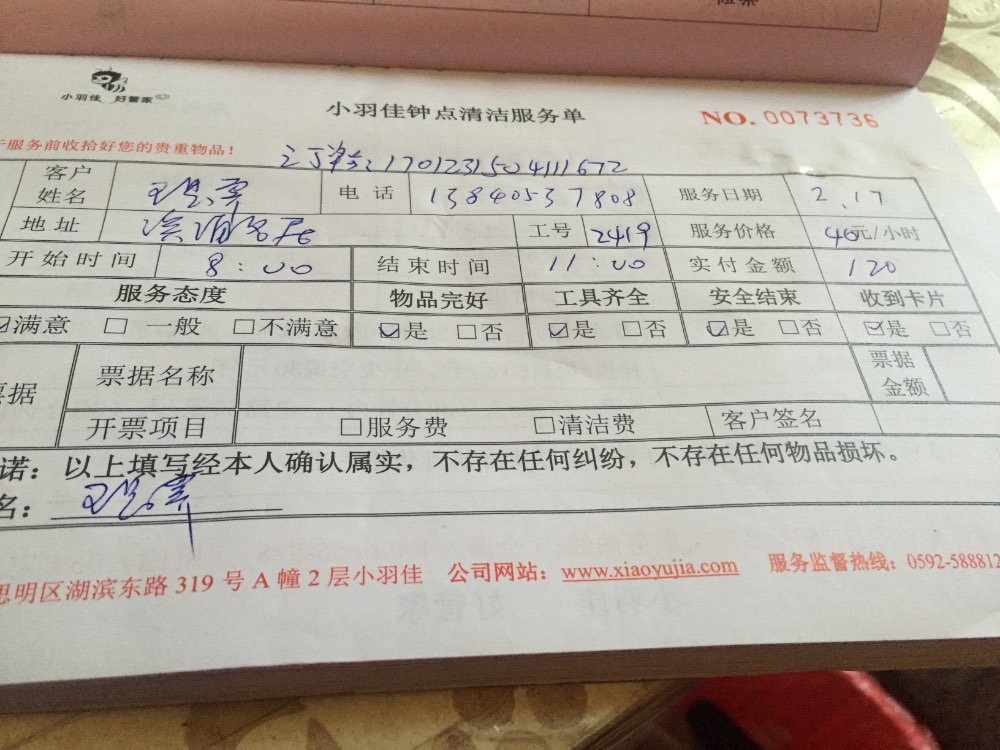 小羽佳 好管家
小羽佳钟点清洁服务单
NO. 0073736
服务前收拾好您的贵重物品！
订单号：1701231504111672
客户姓名 电话 13840537808 服务日期 2.17
地址 工号 2419 服务价格 40元/小时
开始时间 8:00 结束时间 11:00 实付金额 120
服务态度 物品完好 工具齐全 安全结束 收到卡片
☑满意 □一般 □不满意 ☑是 □否 ☑是 □否 ☑是 □否 ☑是 □否
据 票据名称 票据金额
开票项目 □服务费 □清洁费 客户签名
诺：以上填写经本人确认属实，不存在任何纠纷，不存在任何物品损坏。
名：
思明区湖滨东路 319 号 A 幢 2 层小羽佳 公司网站：www.xiaoyujia.com 服务监督热线：0592-588812